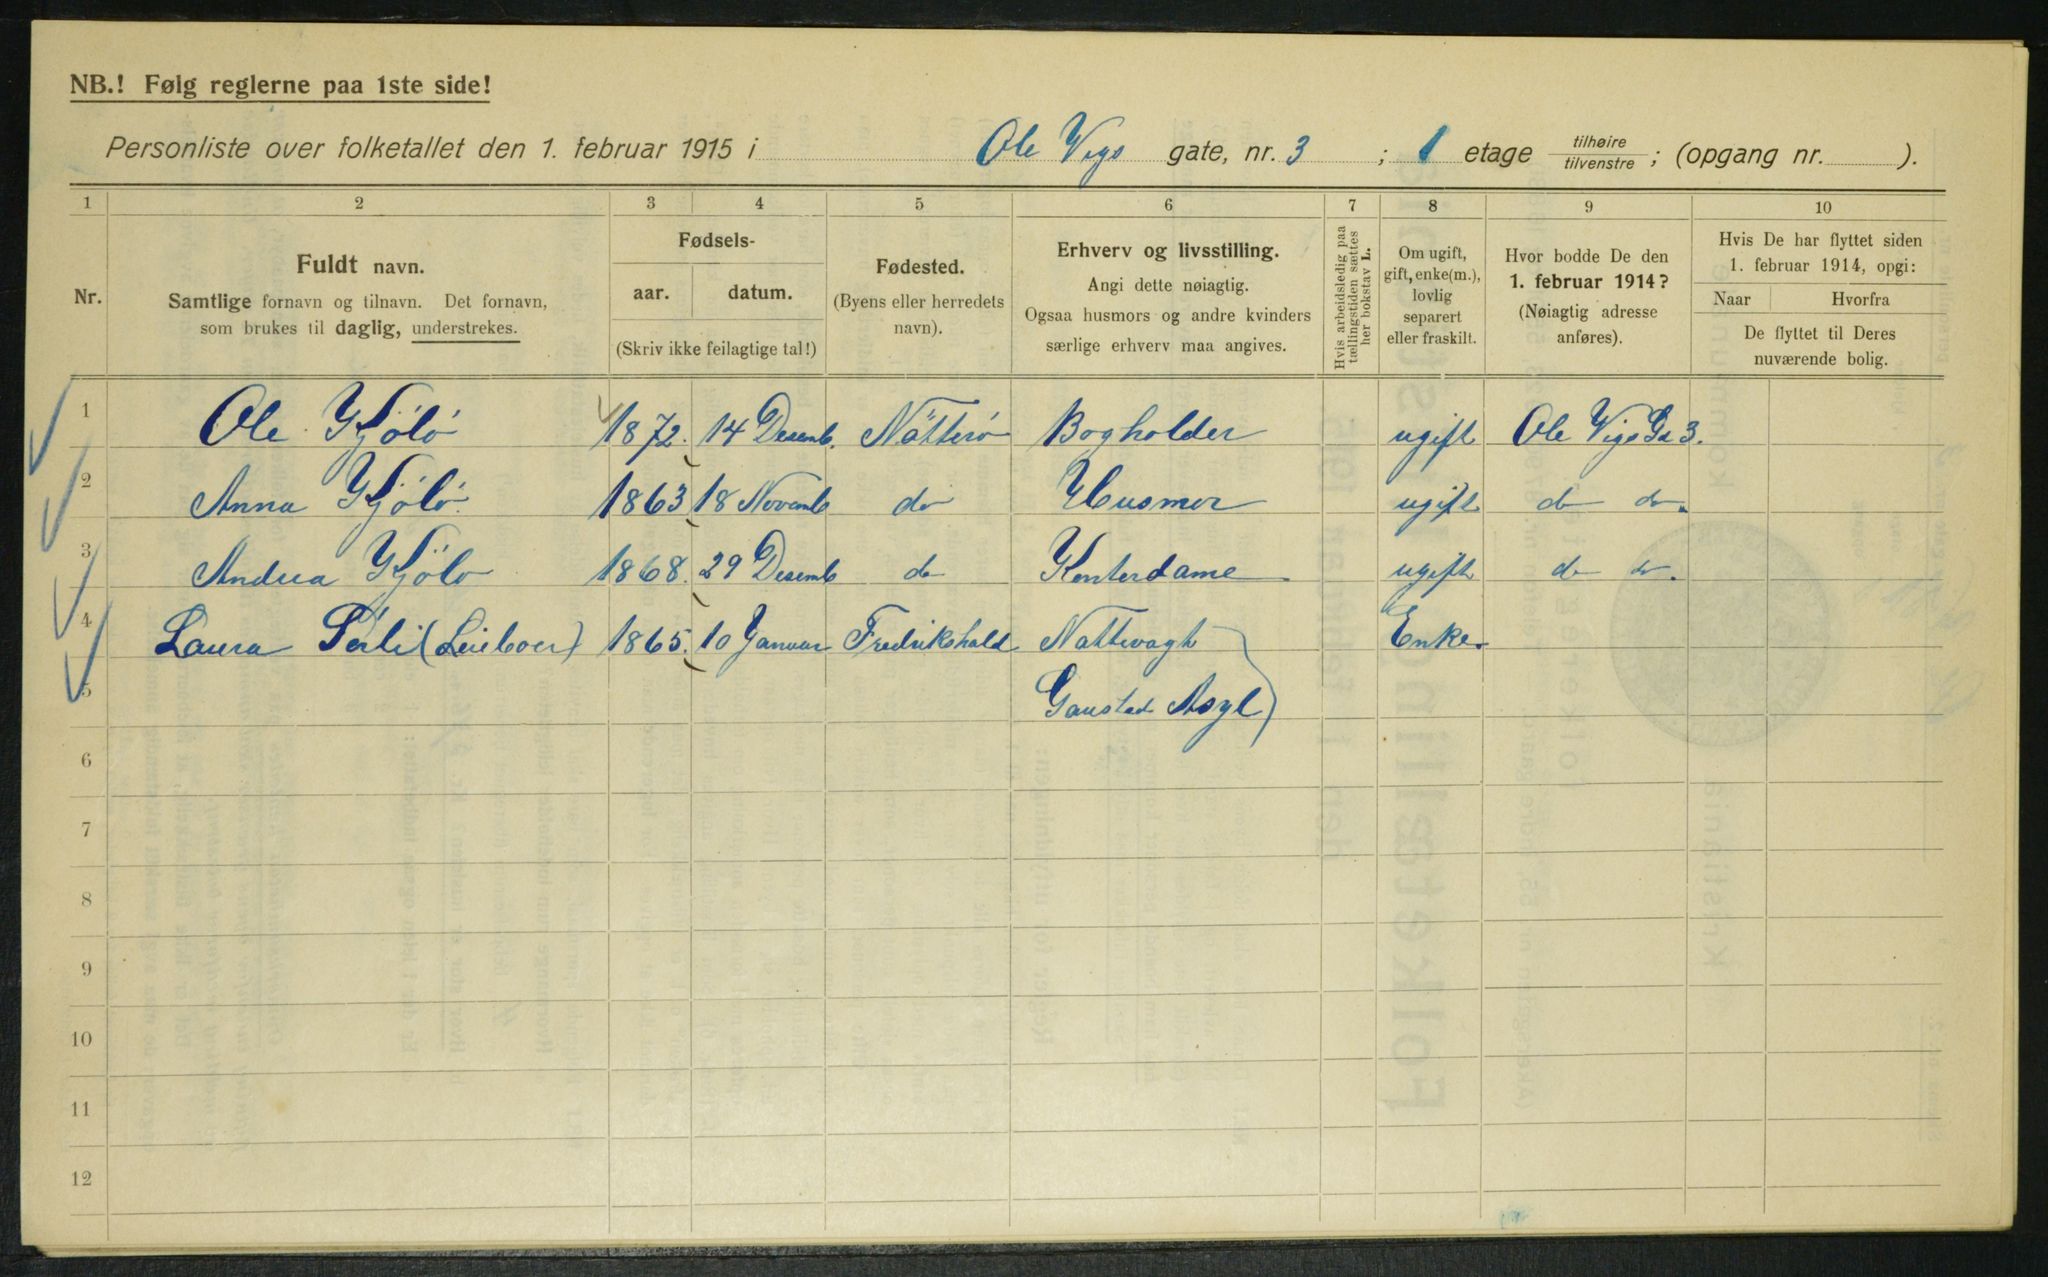 NB.! Følg reglerne paa 1ste side!
Personliste over folketallet den 1. februar 1915 i Ole Vigs gate, nr. 3 ; 1 etage tilhøire tilvenstre ; (opgang nr. ).
1 2 3 4 5 6 7 8 9 10
Nr.
Fuldt navn.
Samtlige fornavn og tilnavn. Det fornavn,
som brukes til daglig, understrekes.
Fødsels-
aar. datum.
(Skriv ikke feilagtige tal!)
Fødested.
(Byens eller herredets
navn).
Erhverv og livsstilling.
Angi dette nøiagtig.
Ogsaa husmors og andre kvinders
særlige erhverv maa angives.
Hvis arbeidsledig paa
tællingstiden sættes
her bokstav L.
Om ugift,
gift, enke(m.),
lovlig
separert
eller fraskilt.
Hvor bodde De den
1. februar 1914?
(Nøiagtig adresse
anføres).
Hvis De har flyttet siden
1. februar 1914, opgi:
Naar Hvorfra
De flyttet til Deres
nuværende bolig.
1 Ole Kjölö 1872. 14 Desemb. Nötterö Bogholder ugift Ole Vigs Gd 3.
2 Anna Kjölö 1863 18 Novemb do Husmor ugift do do.
3 Andrea Kjölö 1868. 29 Desemb do Kontordame ugift do do.
4 Laura (Leieboer) 1865. 10 Januar Fredrikshald Nattevagt Enke.
5 Gaustad Asyl
6
7
8
9
10
11
12